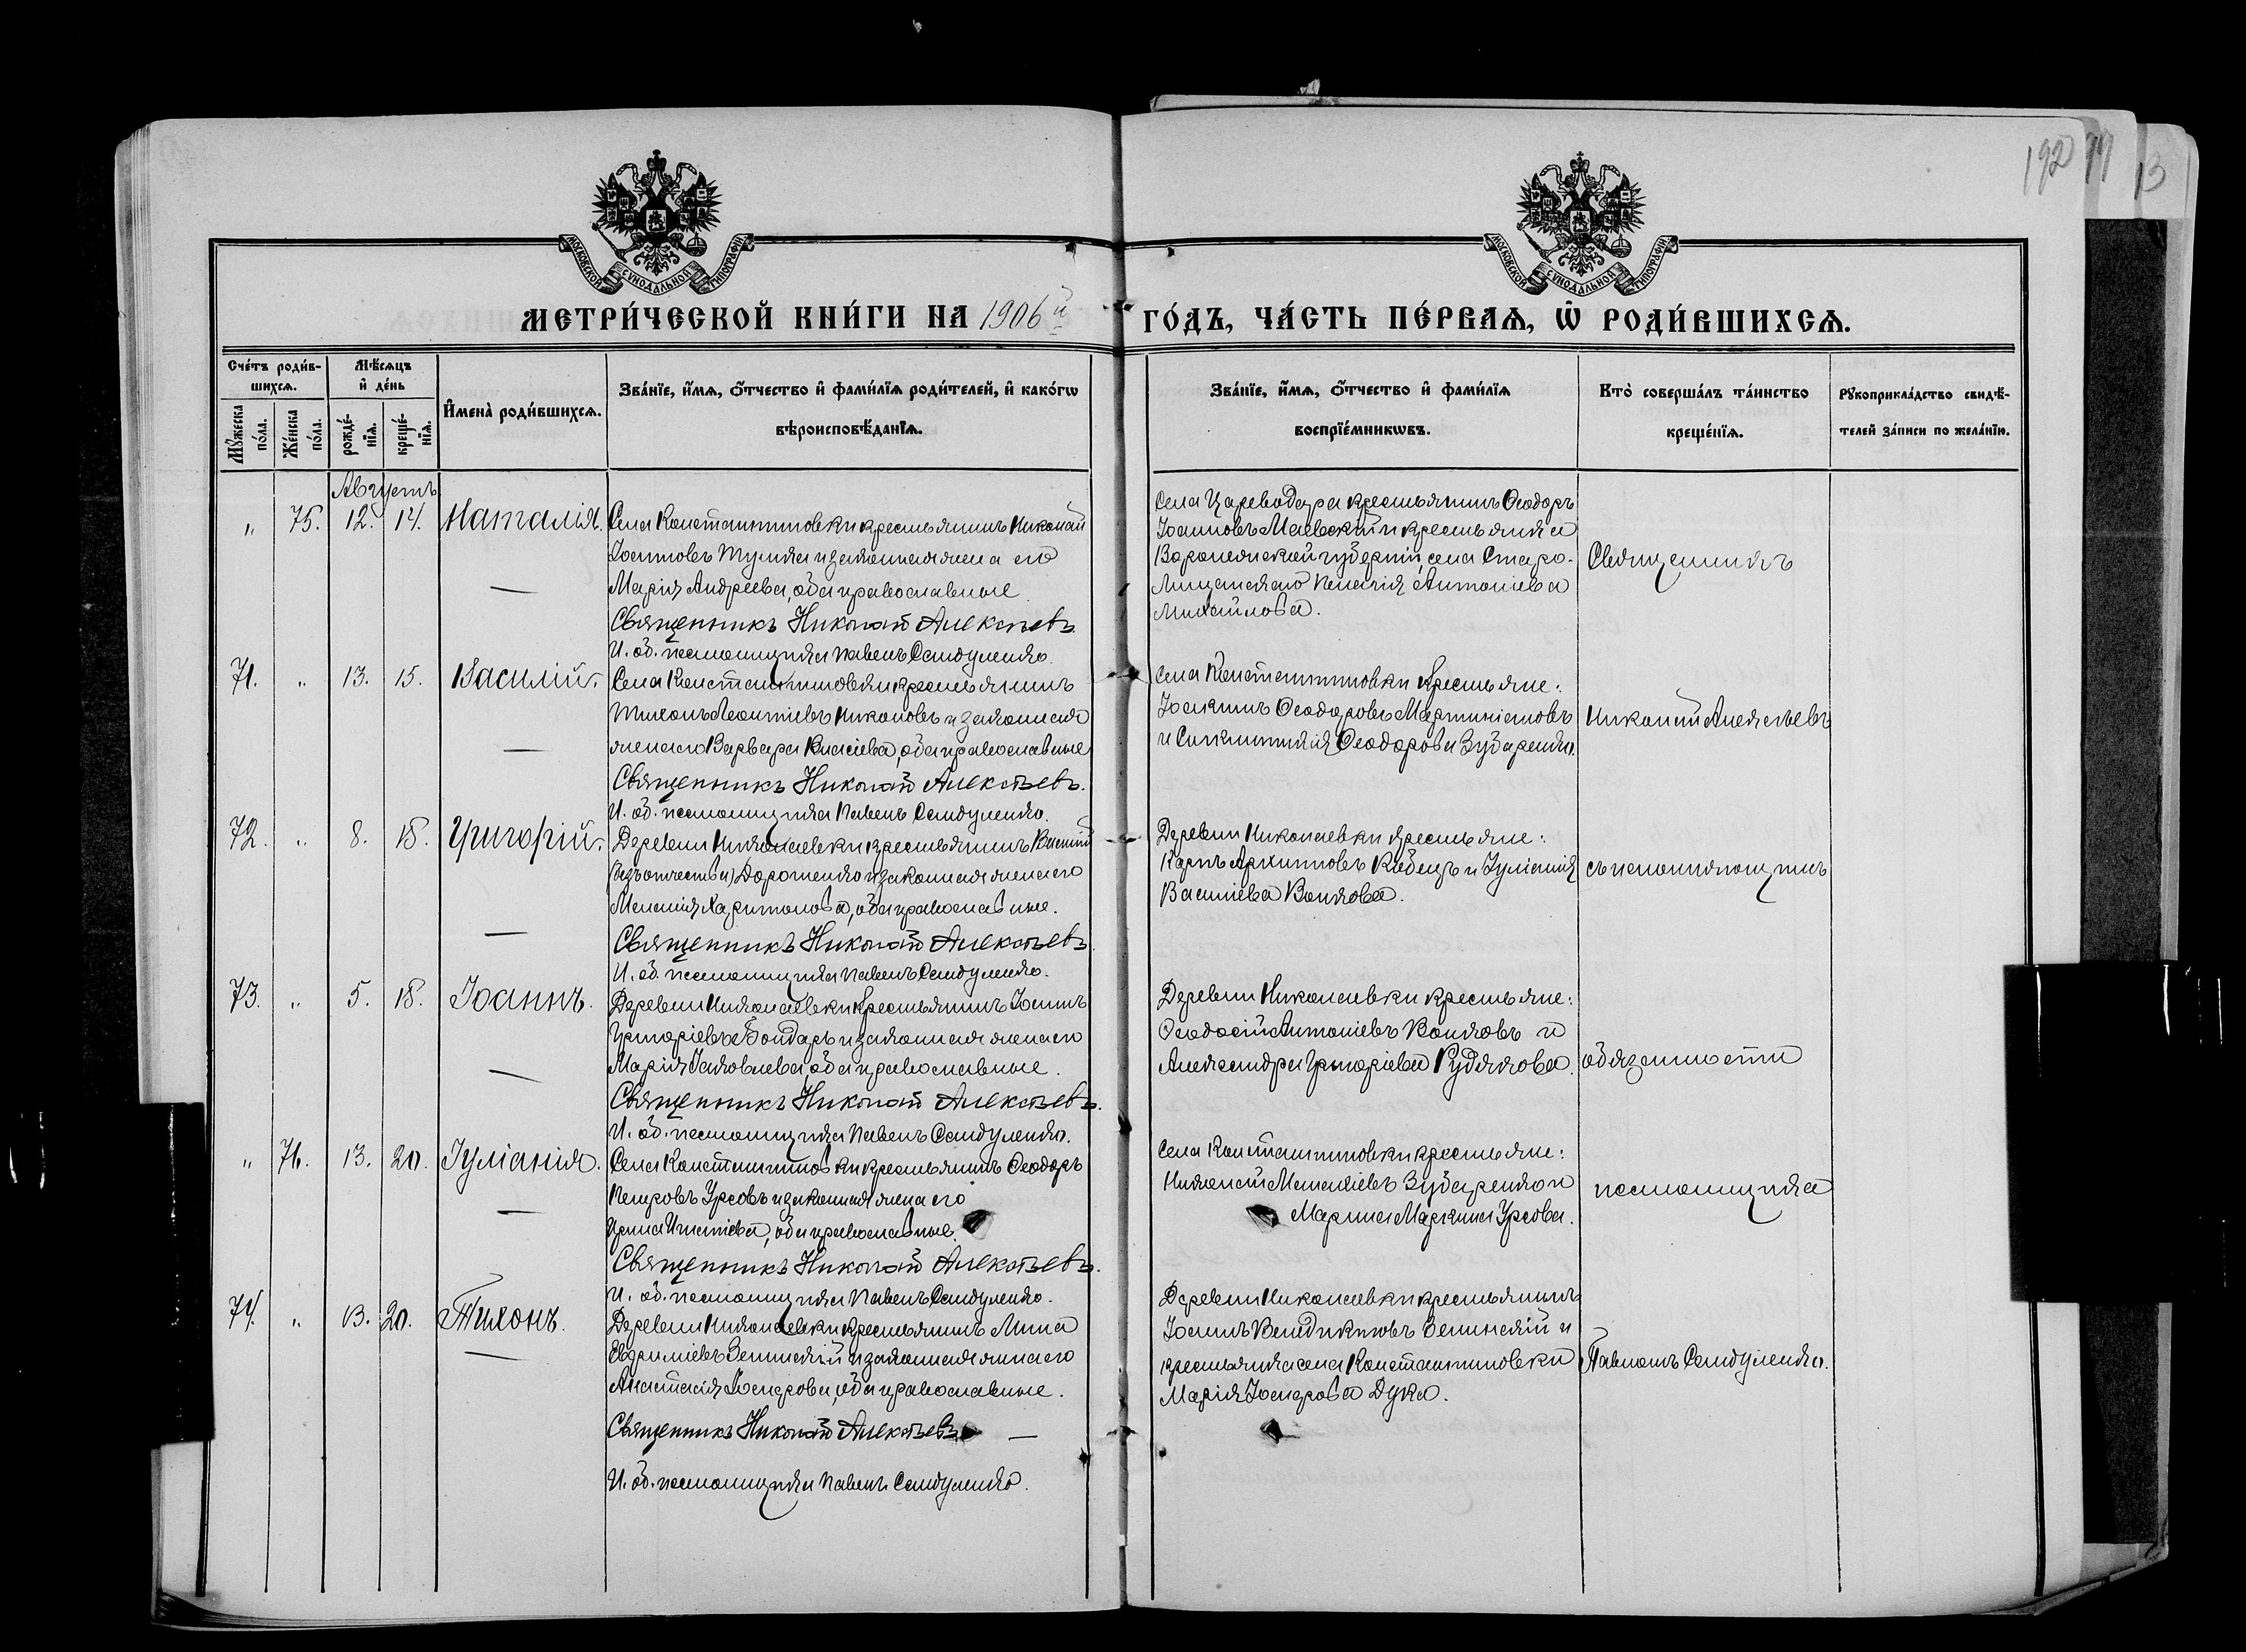 192
МОСКОВСКОЙ СѴНОДАЛЬНОЙ ТИПОГРАФІИ
МОСКОВСКОЙ СѴНОДАЛЬНОЙ ТИПОГРАФІИ
МЕТРИ́ЧЕСКОЙ КНИ́ГИ НА 1906й
ГО́ДЪ, ЧА́СТЬ ПЕ́РВАѦ, Ѡ҆ РОДИ́ВШИХСѦ.
Сче́тъ роди́в-
шихсѧ.
Мꙋ́жеска по́ла.
Же́нска по́ла.
Мѣ́сѧцъ
и҆ де́нь
рожде́-нїѧ.
креще́-нїѧ.
И҆мена̀ роди́вшихсѧ.
Зва́нїе, и҆́мѧ, ѻ҆́тчество и҆ фами́лїѧ роди́телей, и҆ како́гѡ
вѣроисповѣ́данїѧ.
Зва́нїе, и҆́мѧ, ѻ҆́тчество и҆ фами́лїѧ
воспрїе́мникѡвъ.
Кто̀ соверша́лъ та́инство
креще́нїѧ.
Рꙋкоприкла́дство свидѣ́-
телей за́писи по жела́нїю.
Августъ
" 75. 12. 14. Наталія.
Села Константиновки крестьянинъ Николай
Іоанновъ и законная жена его
Марія Андреева, оба православные.
Священникъ Николай Алексѣевъ.
И. об. псаломщика Павелъ Сандуленко.
Села Царевода́ра крестьянинъ Ѳеодоръ
Іоанновъ Маевскій и крестьянка
Воронежской губерніи, села Старо-
Пелагія Антоніева
Михайлова.
Священникъ
71. " 13. 15. Василій.
Села Константиновки крестьянинъ
Тихонъ Леонтіевъ Никоновъ и законная
жена его Варвара Власіева, оба православные
Священникъ Николай Алексѣевъ.
И. об. псаломщика Павелъ Сандуленко.
Села Константиновки крестьяне:
Іоакимъ Ѳеодоровъ Мартиніановъ
и Синклитикія Ѳеодорова Зубаренко.
Николай Алексѣевъ
72. " 8. 18. Григорій.
Деревни Николаевки крестьянинъ Василій
(безъ отчества) Дорошенко и законная жена его
Меланія Харитонова, оба православные.
Священникъ Николай Алексѣевъ
И. об. псаломщика Павелъ Сандуленко.
Деревни Николаевки крестьяне:
Карпъ Архиповъ Кобецъ и Іуліанія
Василіева Волкова.
съ исполняющимъ
73. " 5. 18. Іоаннъ.
Деревни Николаевки крестьянинъ Іоаннъ
Григоріевъ Бондарь и законная жена его
Марія Іаковлева, оба православные.
Священникъ Николай Алексѣевъ.
И. об. псаломщика Павелъ Сандуленко.
Деревни Николаевки крестьяне:
Ѳеодосій Антоніевъ Волковъ и
Александра Григоріева Рудякова.
обязанности
" 76. 13. 20. Іуліанія.
Села Константиновки крестьянинъ Ѳеодоръ
Петровъ Урсовъ и законная жена его
Ирина Игнатіева, оба православные.
Священникъ Николай Алексѣевъ.
И. об. псаломщика Павелъ Сандуленко.
Села Константиновки крестьяне:
Николай Зубаренко и
Марина Маркина Урсова.
псаломщика
74. " 13. 20. Тихонъ.
Деревни Николаевки крестьянинъ Мина
Евфиміевъ Зелинскій и законная жена его
Анастасія Іосифова, оба православные.
Священникъ Николай Алексѣевъ
И. об. псаломщика Павелъ Сандуленко.
Деревни Николаевки крестьянинъ
Іоаннъ Венедиктовъ Зелинскій и
крестьянка села Константиновки
Марія Іосифова Дука.
Павломъ Сандуленко.